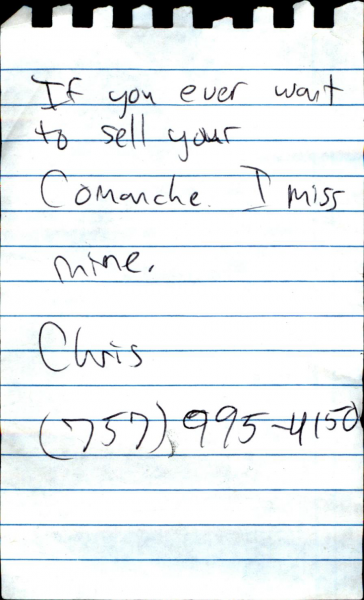 If you ever want
to sell your
Comanche. I miss
mine.
Chris
(757) 995-4150